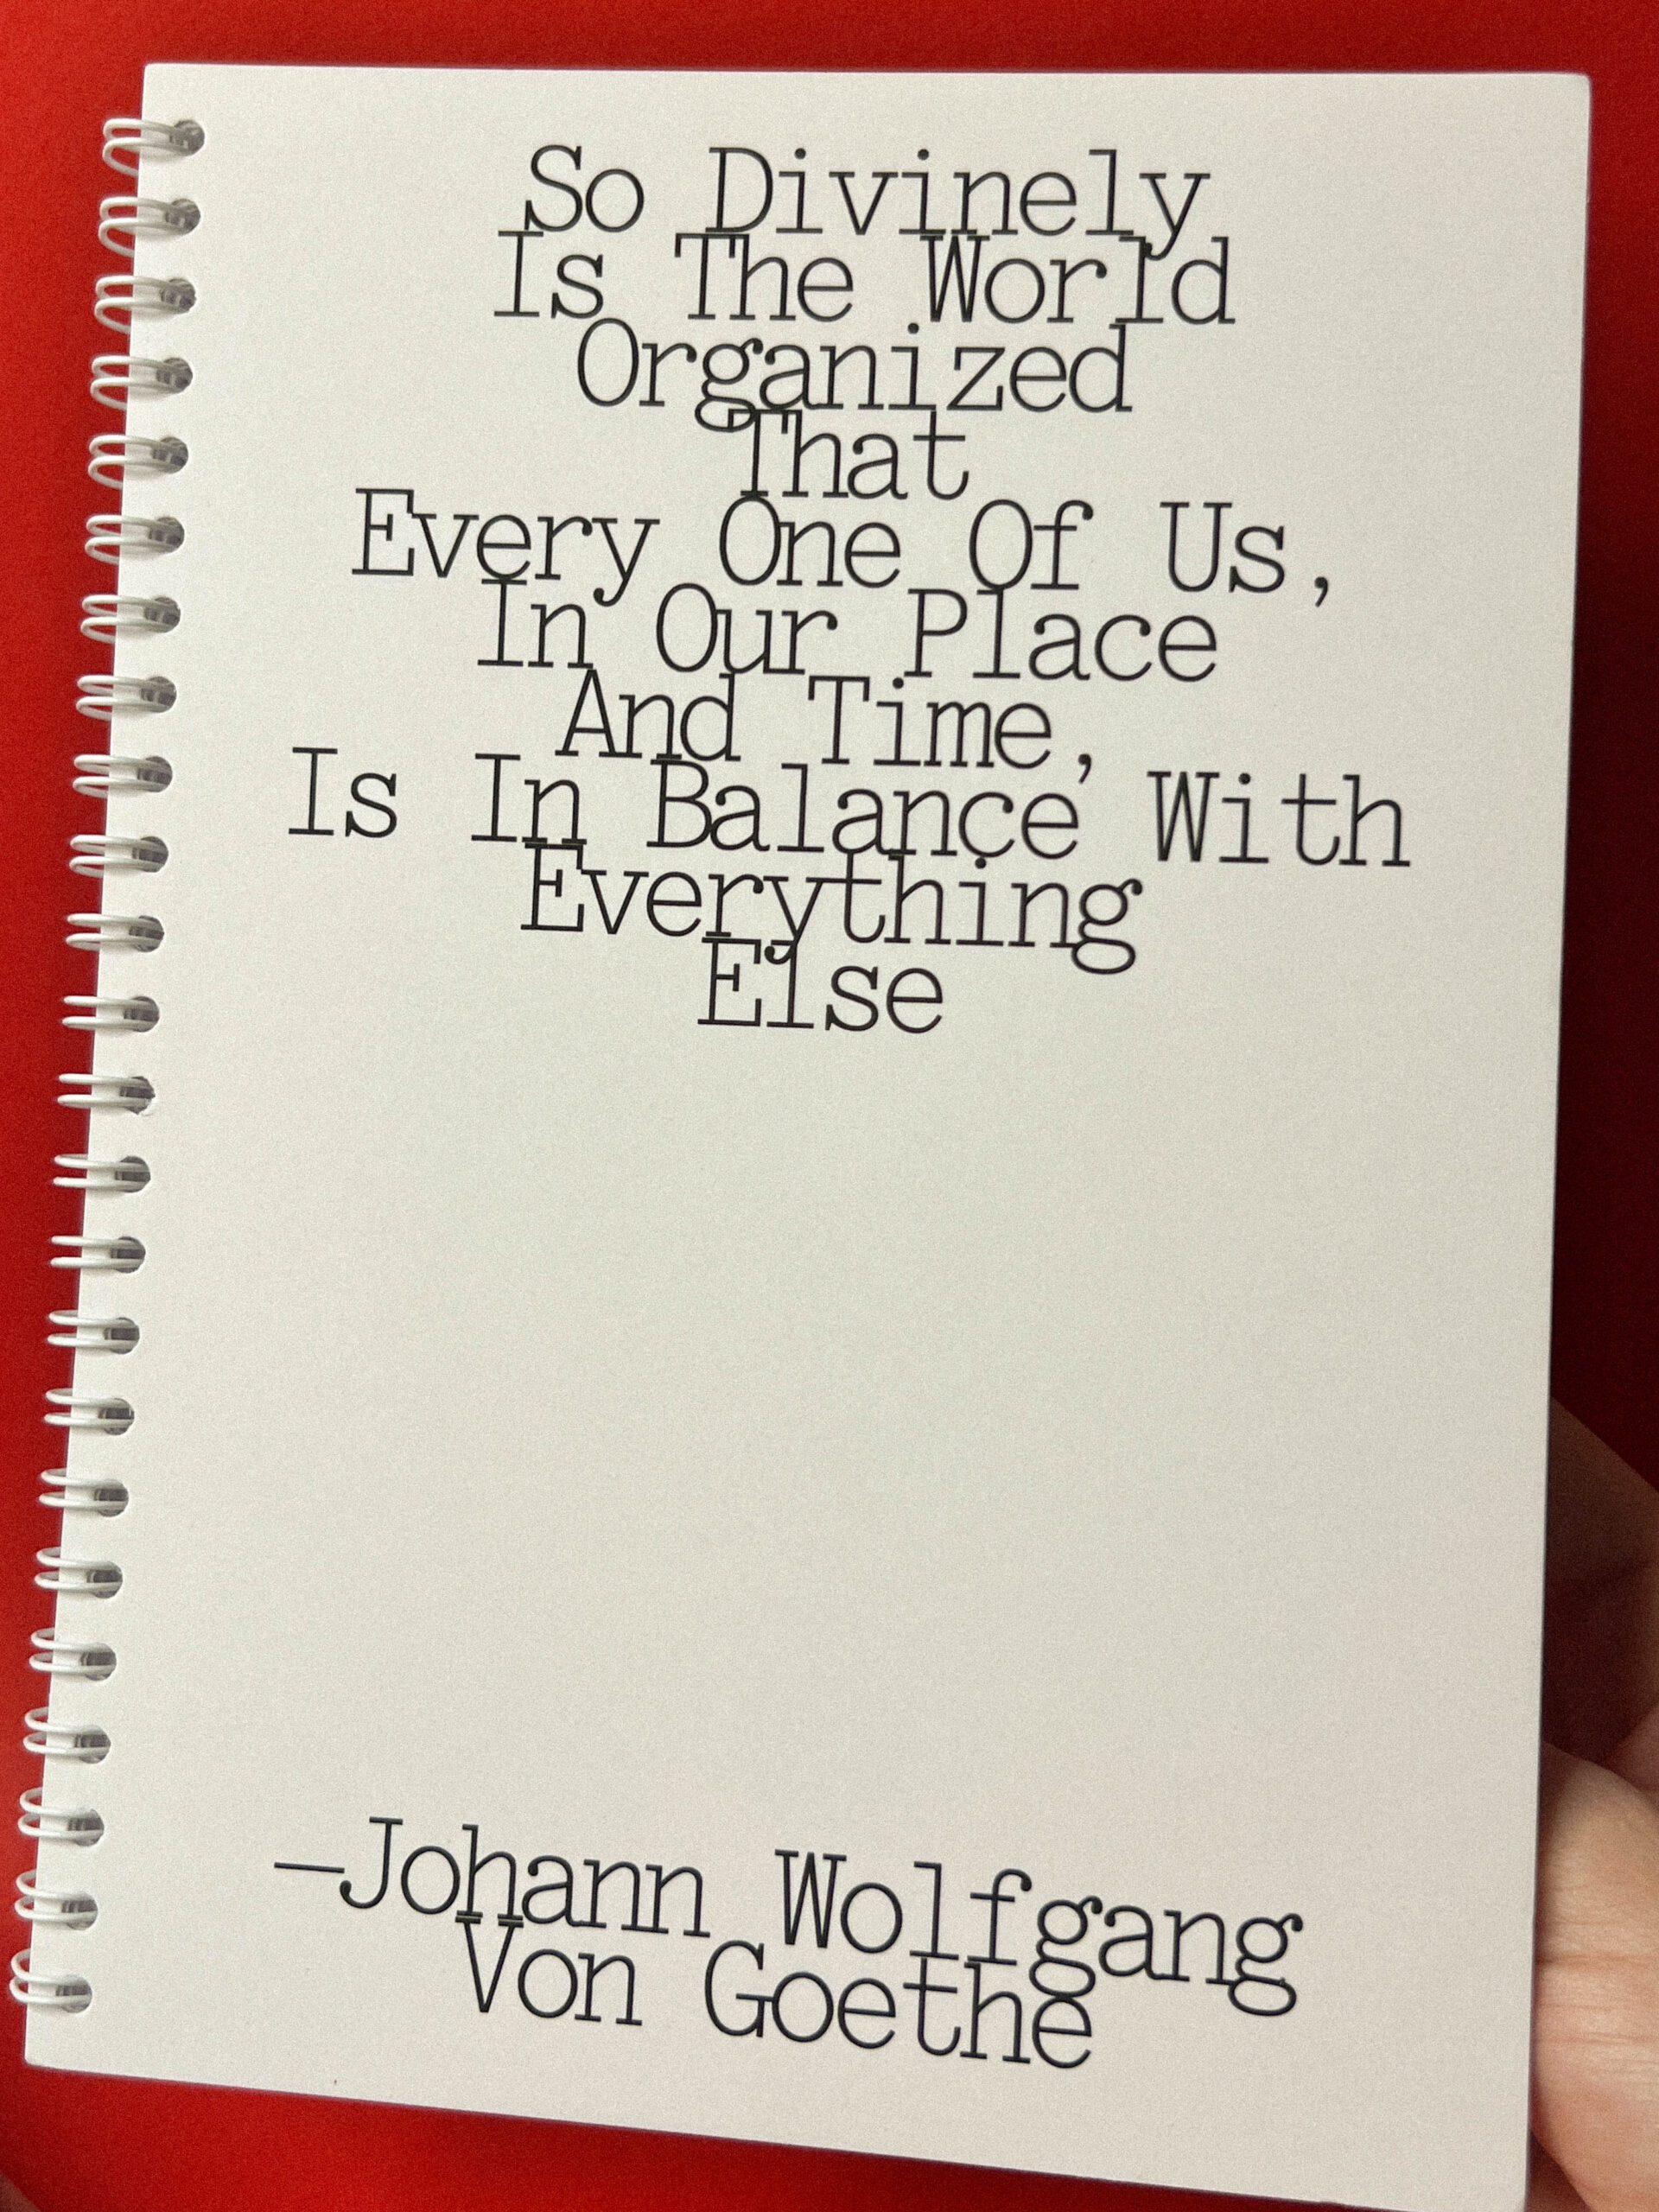 So Divinely
Is The World
Organized
That
Every One Of Us,
In Our Place
And Time,
Is In Balance With
Everything
Else
—Johann Wolfgang
Von Goethe